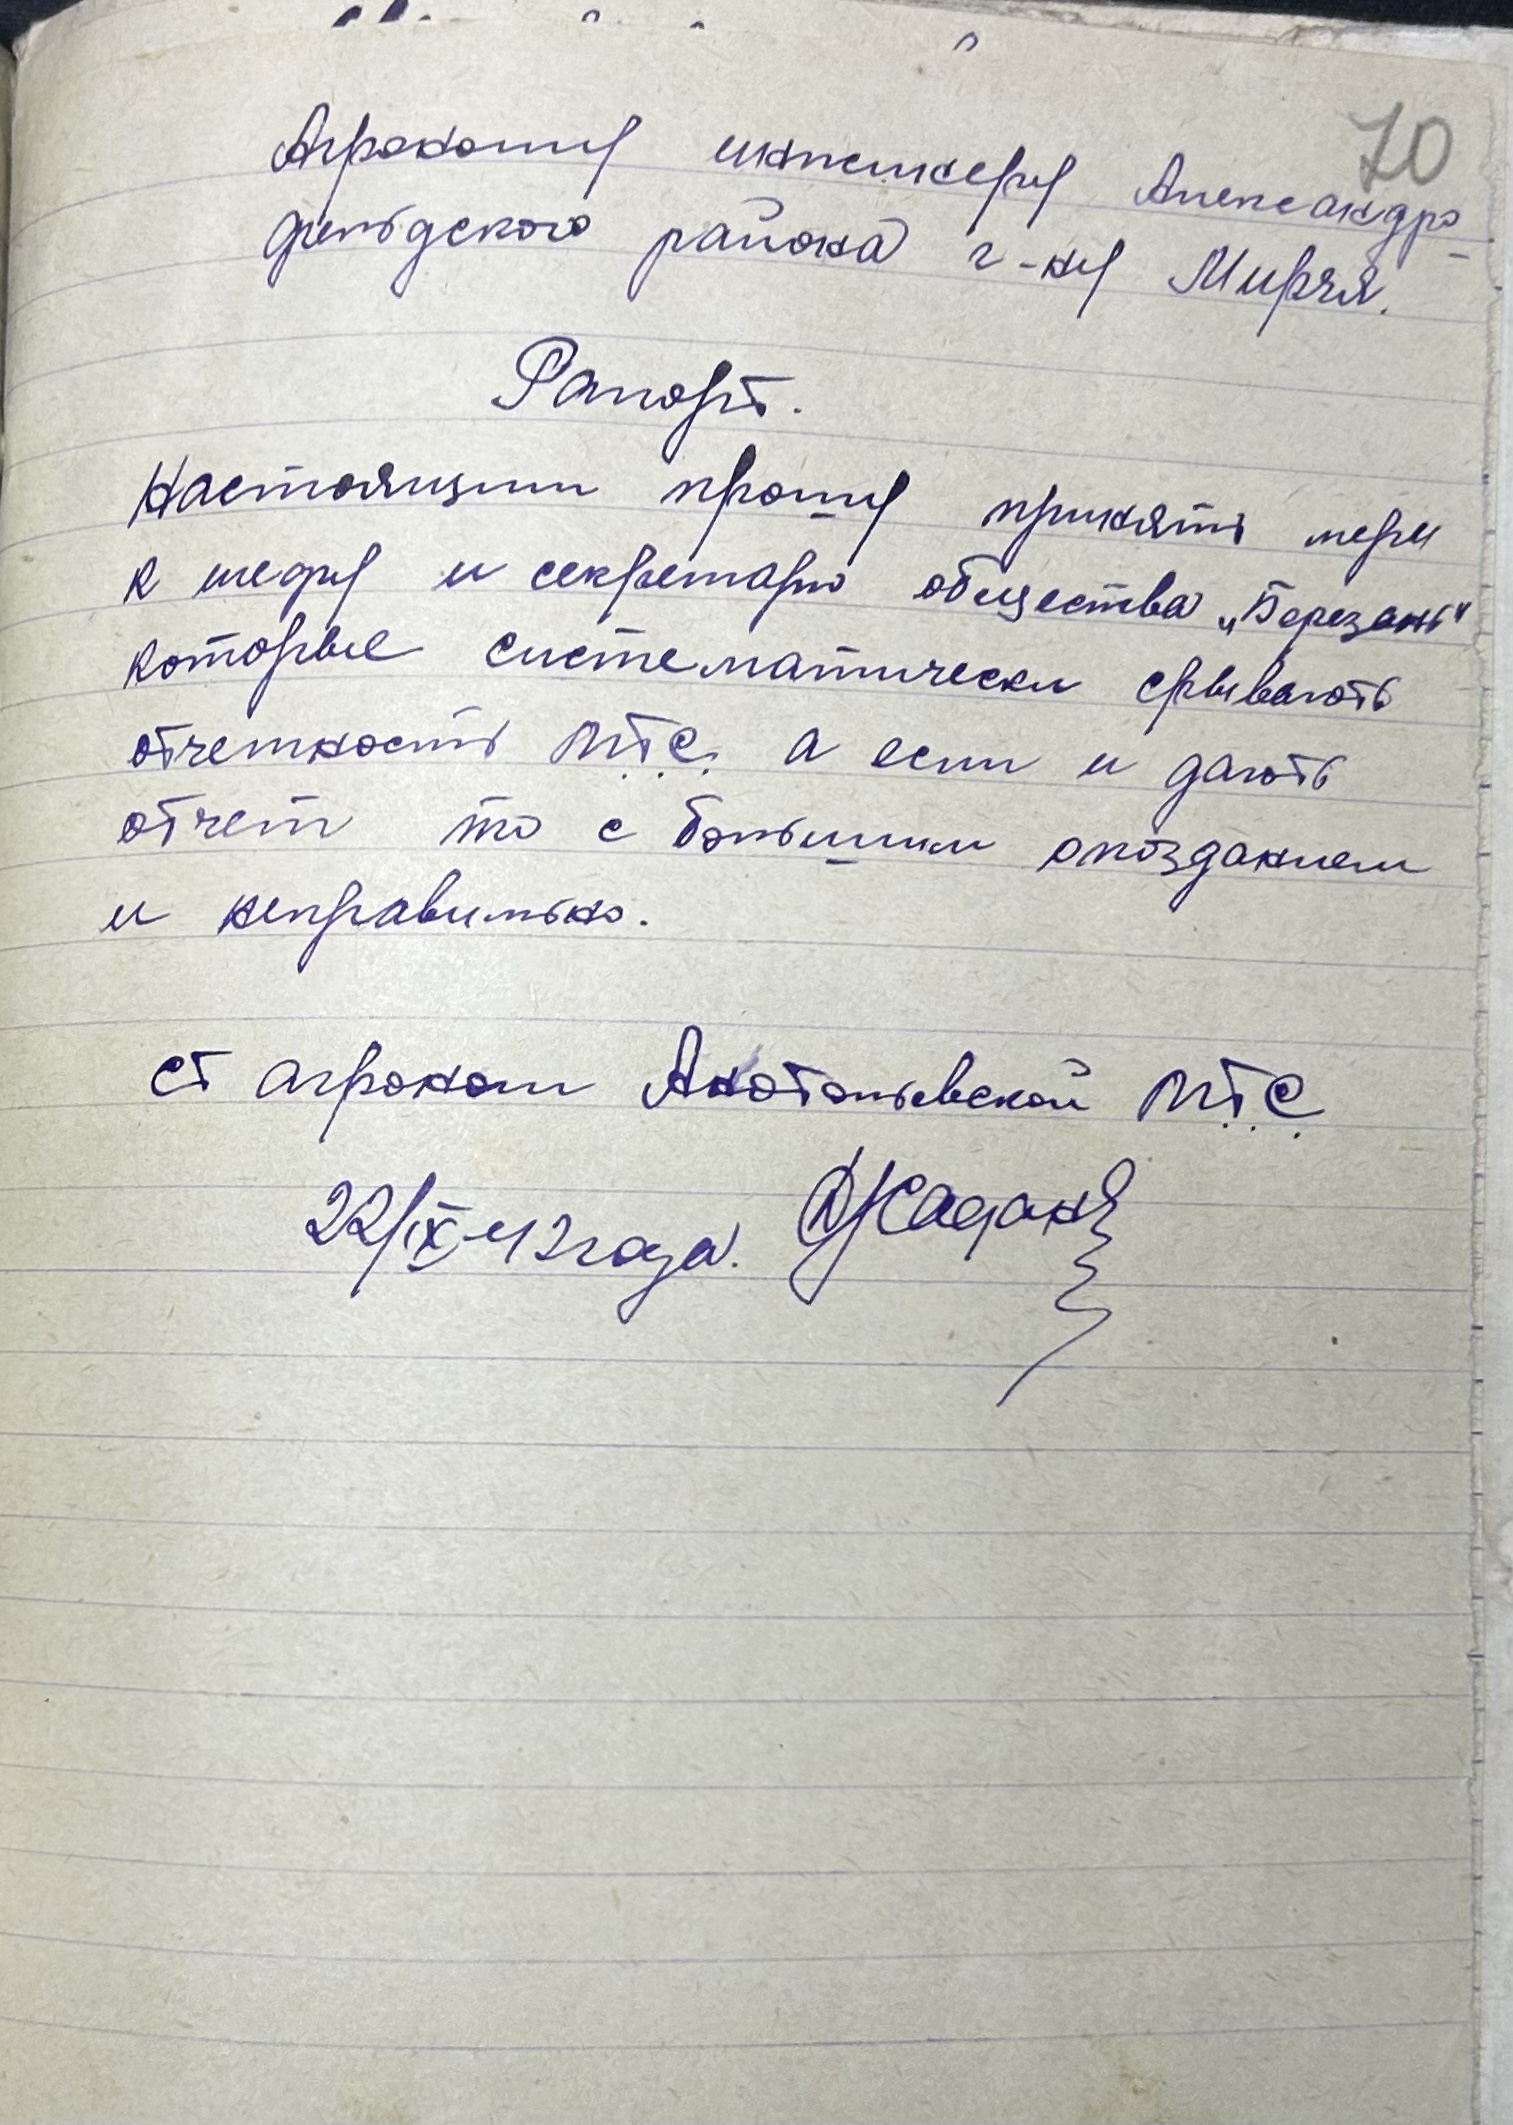 70
Агроному инженеру Александро-
фельдского района г-ну Мирчя.
Рапорт.
Настоящим прошу принять меры
к шефу и секретарю общества „Березань"
которые систематически срывають
отчетность М.Т.С. а если и дають
отчет то с большим опозданием
и неправильно.
ст агроном Анатольевской М.Т.С.
22/IX-42 года.